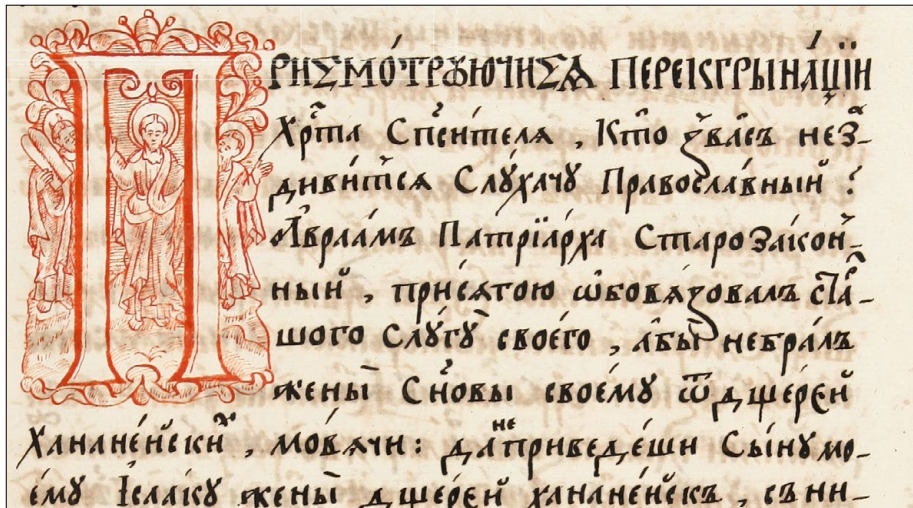 ПРИСМО́ТРꙊЮЧИСѦ ПЕРЕКГРЫНА́ЦЇИ
Хрⷭ҇та Спⷭ҇ителя , Кто̑ з̾ва́съ нез̾-
диви́тсѧ Слу́хачу Правосла́вный ?
А҆враа́мъ Патрїа́рха Старозако́н-
ный , присѧ́гою ѡ҆бовѧзовалъ ста́р-
шого Слꙋгꙋ̀ своего̀ , абы̀ небра́лъ
жены̀ Сн҃овы своемꙋ ѿдщере́й
Ханане́йски́хъ , мо́вѧчи : да́неприведе́ши Сы́нꙋмо-
е́мꙋ І҆саа́кꙋ жены̀ дщере́й ханане́йскъ , съни-